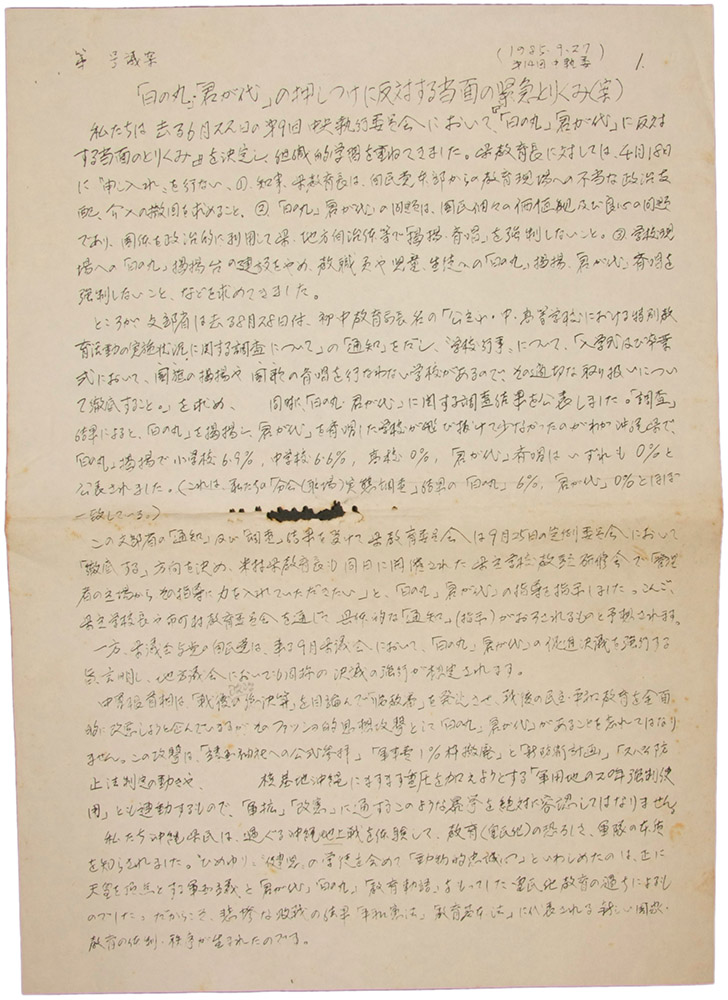 第 号議案
(1985.9.27)
第14回中執委
1.
「日の丸」「君が代」の押しつけに反対する当面の緊急とりくみ(案)
私たちは去る6月22日の第9回中央執行委員会において、『「日の丸」「君が代」に反対
する当面のとりくみ』を決定し、組織的学習を重ねてきました。県教育長に対しては、4月18日
に「申し入れ」を行ない、①.知事、県教育長は、自民党本部からの教育現場への不当な政治支
配、介入の撤回を求めること、②.「日の丸」「君が代」の問題は、国民個々の価値観及び良心の問題
であり、団体を政治的に利用して県、地方自治体等で「掲揚、斉唱」を強制しないこと。③.学校現
場への「日の丸」掲揚台の建設をやめ、教職員や児童、生徒への「日の丸」掲揚、「君が代」斉唱を
強制しないこと、などを求めてきました。
ところが文部省は去る8月28日付、初中教育局長名の「公立小・中・高等学校における特別教
育活動の実施状況に関する調査について」の「通知」をだし、「学校行事」について、「入学式及び卒業
式において、国旗の掲揚や国歌の斉唱を行なわない学校があるので、その適切な取り扱いについ
て徹底すること。」を求め、 同時に「日の丸・君が代」に関する調査結果を公表しました。「調査」
結果によると、「日の丸」を掲揚し、「君が代」を斉唱した学校が飛び抜けて少なかったのがわが沖縄県で、
「日の丸」掲揚で小学校6.9%、中学校6.6%、高校0%、「君が代」斉唱はいずれも0%と
公表されました。(これは、私たちの「分会(職場)実態調査」結果の「日の丸」6%、「君が代」0%とほぼ
一致している。)
この文部省の「通知」及び「調査」結果を受けて県教育委員会は9月25日の定例委員会において
「徹底する」方向を決め、米村県教育長も同日に開催された県立学校教頭研修会で「管理
者の立場からその指導に力を入れていただきたい」と、「日の丸」「君が代」の指導を指示しました。こんご、
県立学校長や市町村教育委員会を通じて具体的な「通知」(指示)がおろされるものと予想されます。
一方、県議会与党の自民党は、来る9月県議会において、「日の丸」「君が代」の促進決議を強行する
と言明し、地方議会においても同様の決議の強行が想定されます。
中曽根首相は、「戦後政治の総決算」を目論んで「臨教審」を発足させ、戦後の民主・平和教育を全面
的に改悪しようと企んでいるが、そのファッショ的思想攻撃として「日の丸」「君が代」があることを忘れてはなり
ません。この攻撃は、「靖国神社への公式参拝」「軍事費1%枠撤廃」と「新防衛計画」「スパイ防
止法制定の動きや、 核基地沖縄にますます重圧を加えようとする「軍用地の20年強制使
用」とも連動するもので、「軍拡」「改憲」に通ずるこのような暴挙を絶対に容認してはなりません。
私たち沖縄県民は、過ぐる沖縄地上戦を体験して、教育(皇民化)の恐ろしさ、軍隊の本質
を知らされました。「ひめゆり」「健児」の学徒を含めて「動物的忠誠心」といわしめたのは、正に
天皇を頂点とする軍国主義と「君が代」「日の丸」「教育勅語」をもってした皇民化教育の過ちによるも
のでした。だからこそ、悲惨な敗戦の結果「平和憲法」「教育基本法」に代表される新しい国家・
教育の体制・秩序が生まれたのです。